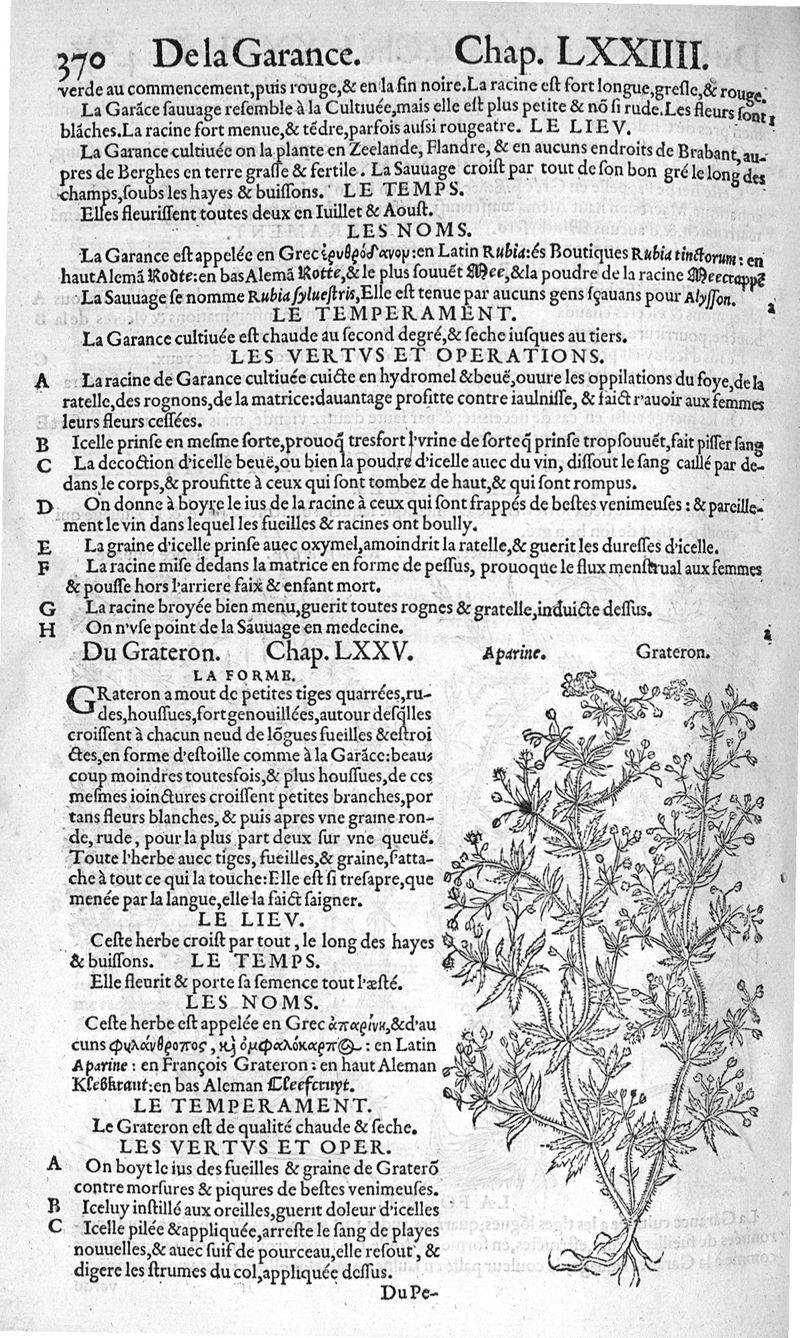 370 De la Garance. Chap. LXXIIII.
verde au commencement,puis rouge,& en la fin noire.La racine est fort longue,gresle,& rouge.
La Garãce sauuage resemble à la Cultiuée,mais elle est plus petite & nõ si rude.Les fleurs sont
blâches.La racine fort menue,& tẽdre,parfois aussi rougeatre. LE LIEV.
La Garance cultiuée on la plante en Zeelande, Flandre, & en aucuns endroits de Brabant, au-
pres de Berghes en terre grasse & fertile. La Sauuage croist par tout de son bon gré le long des
champs,soubs les hayes & buissons. LE TEMPS.
Elles fleurissent toutes deux en Iuillet & Aoust.
LES NOMS.
La Garance est appelée en Grec ἐρυθρόδανον:en Latin Rubia:és Boutiques Rubia tinctorum: en
haut Alemã Rodte:en bas Alemã Rotte,& le plus souuẽt Mee,& la poudre de la racine Meecrappẽ
La Sauuage se nomme Rubia syluestris,Elle est tenue par aucuns gens sçauans pour Alysson.
LE TEMPERAMENT.
La Garance cultiuée est chaude au second degré,& seche iusques au tiers.
LES VERTVS ET OPERATIONS.
A La racine de Garance cultiuée cuicte en hydromel & beuë,ouure les oppilations du foye,de la
ratelle,des rognons,de la matrice:dauantage profitte contre iaulnisse, & faict r'auoir aux femmes
leurs fleurs cessées.
B Icelle prinse en mesme sorte,prouoq̃ tresfort l'vrine de sorte q̃ prinse trop souuẽt,fait pisser sang
C La decoction d'icelle beuë,ou bien la poudre d'icelle auec du vin, dissout le sang caillé par de-
dans le corps,& proufitte à ceux qui sont tombez de haut,& qui sont rompus.
D On donne à boyre le ius de la racine à ceux qui sont frappés de bestes venimeuses : & pareille-
ment le vin dans lequel les fueilles & racines ont boully.
E La graine d'icelle prinse auec oxymel,amoindrit la ratelle,& guerit les duresses d'icelle.
F La racine mise dedans la matrice en forme de pessus, prouoque le flux menstrual aux femmes
& pousse hors l'arriere faix & enfant mort.
G La racine broyée bien menu,guerit toutes rognes & gratelle,induicte dessus.
H On n'vse point de la Sauuage en medecine.
Du Grateron. Chap. LXXV.
Aparine. Grateron.
LA FORME.
GRateron a mout de petites tiges quarrées,ru-
des,houssues,fort genouillées,autour desq̃lles
croissent à chacun neud de lõgues fueilles & estroi
ctes,en forme d'estoille comme à la Garãce:beau-
coup moindres toutesfois,& plus houssues,de ces
mesmes ioinctures croissent petites branches,por
tans fleurs blanches, & puis apres vne graine ron-
de, rude, pour la plus part deux sur vne queuë.
Toute l'herbe auec tiges, fueilles,& graine,s'atta-
che à tout ce qui la touche:Elle est si tresapre,que
menée par la langue,elle la faict saigner.
LE LIEV.
Ceste herbe croist par tout, le long des hayes
& buissons. LE TEMPS.
Elle fleurit & porte sa semence tout l'æsté.
LES NOMS.
Ceste herbe est appelée en Grec ἀπαρίνη,& d'au
cuns φυλάνθροπος, κ̀ ὀμφαλόκαρπος : en Latin
Aparine : en François Grateron : en haut Aleman
Klebkraut:en bas Aleman Cleefcruyt.
LE TEMPERAMENT.
Le Grateron est de qualité chaude & seche.
LES VERTVS ET OPER.
A On boyt le ius des fueilles & graine de Graterõ
contre morsures & piqures de bestes venimeuses.
B Iceluy instillé aux oreilles,guerit doleur d'icelles
C Icelle pilée & appliquée, arreste le sang de playes
nouuelles,& auec suif de pourceau,elle resout, &
digere les strumes du col,appliquée dessus.
Du Pe-